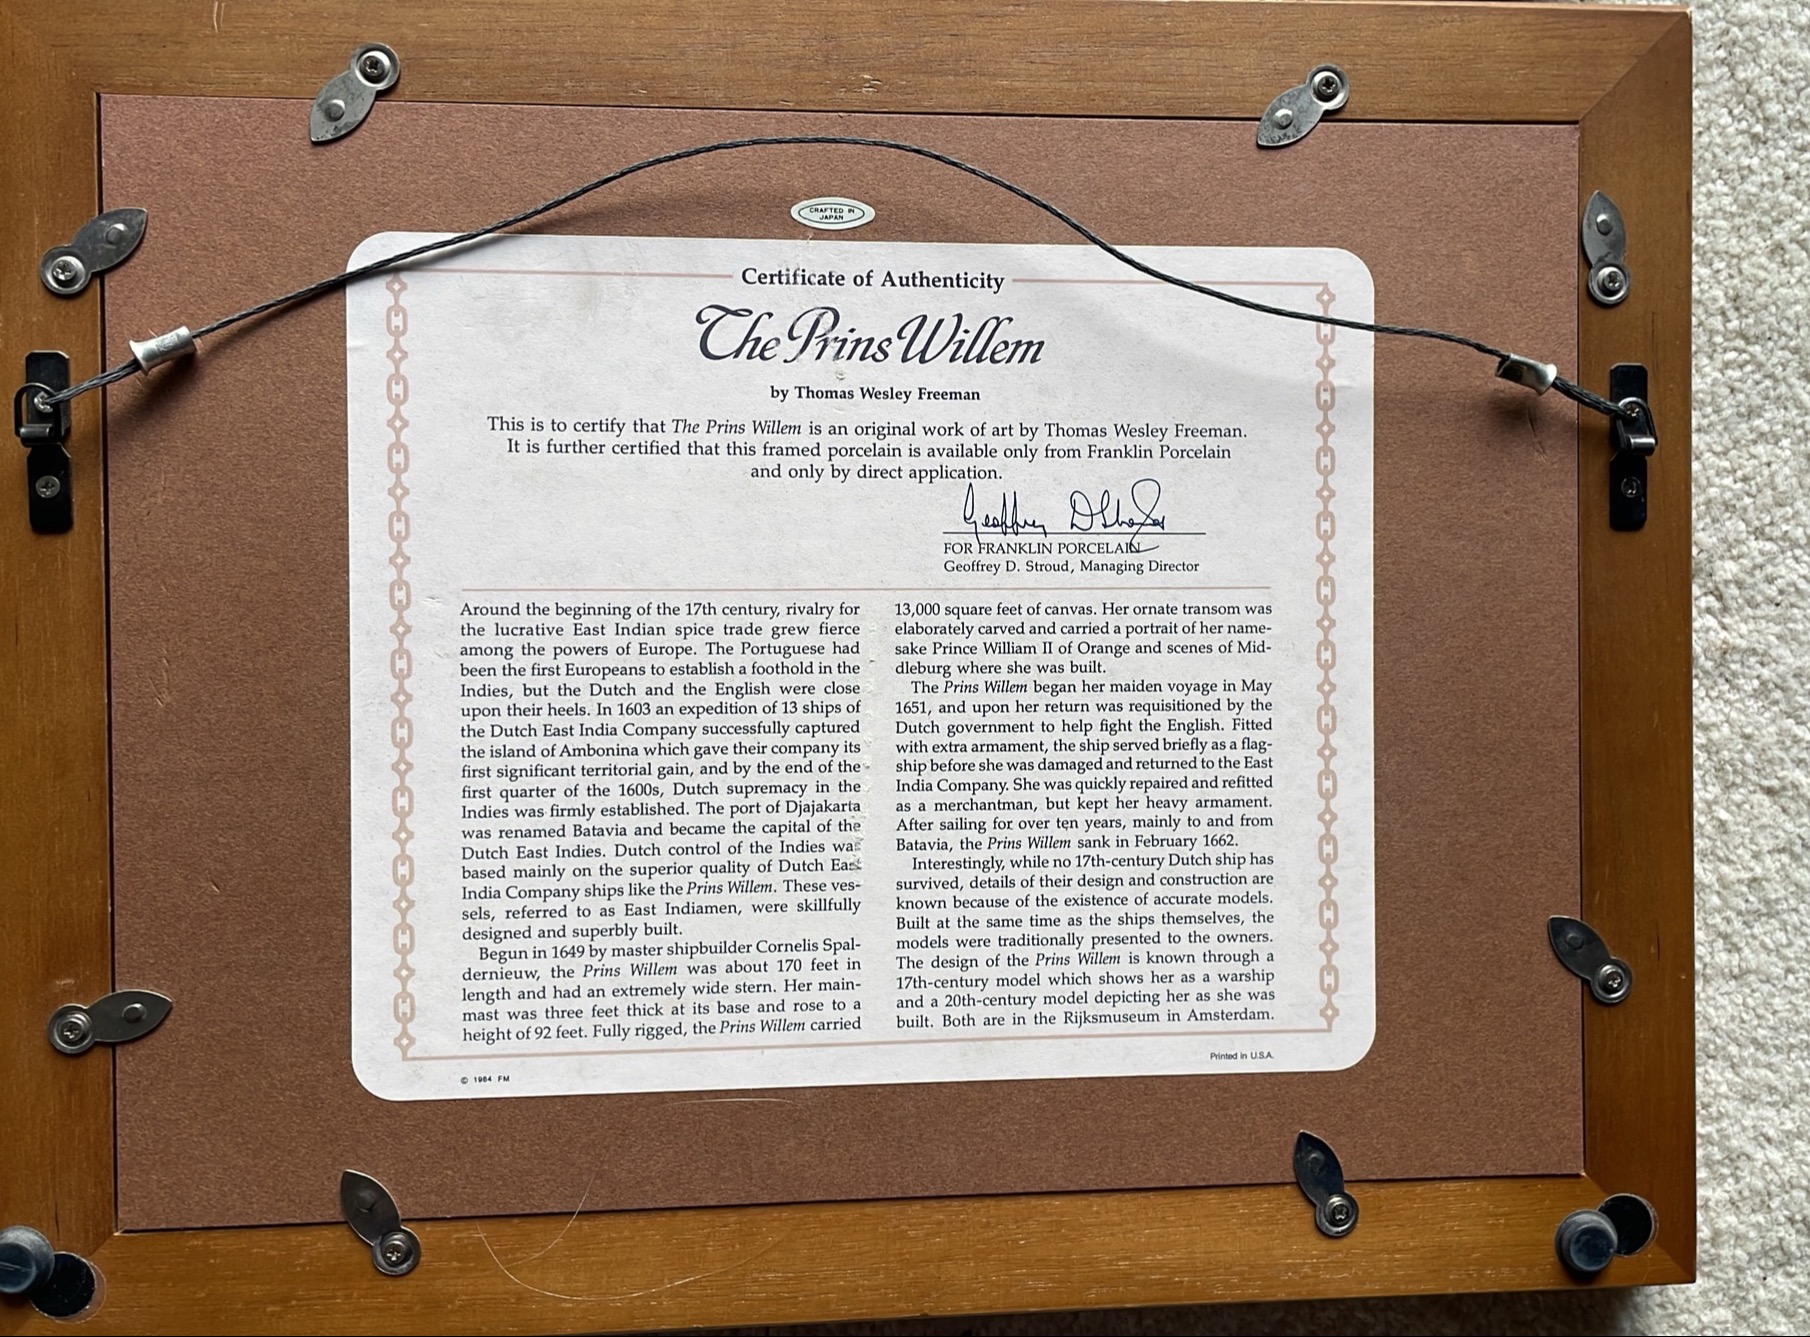 CRAFTED IN
JAPAN
Certificate of Authenticity
The Prins Willem
by Thomas Wesley Freeman
This is to certify that The Prins Willem is an original work of art by Thomas Wesley Freeman.
It is further certified that this framed porcelain is available only from Franklin Porcelain
and only by direct application.
Geoffrey D Stroud
FOR FRANKLIN PORCELAIN
Geoffrey D. Stroud, Managing Director
Around the beginning of the 17th century, rivalry for
the lucrative East Indian spice trade grew fierce
among the powers of Europe. The Portuguese had
been the first Europeans to establish a foothold in the
Indies, but the Dutch and the English were close
upon their heels. In 1603 an expedition of 13 ships of
the Dutch East India Company successfully captured
the island of Ambonina which gave their company its
first significant territorial gain, and by the end of the
first quarter of the 1600s, Dutch supremacy in the
Indies was firmly established. The port of Djajakarta
was renamed Batavia and became the capital of the
Dutch East Indies. Dutch control of the Indies was
based mainly on the superior quality of Dutch East
India Company ships like the Prins Willem. These ves-
sels, referred to as East Indiamen, were skillfully
designed and superbly built.
Begun in 1649 by master shipbuilder Cornelis Spal-
dernieuw, the Prins Willem was about 170 feet in
length and had an extremely wide stern. Her main-
mast was three feet thick at its base and rose to a
height of 92 feet. Fully rigged, the Prins Willem carried
13,000 square feet of canvas. Her ornate transom was
elaborately carved and carried a portrait of her name-
sake Prince William II of Orange and scenes of Mid-
dleburg where she was built.
The Prins Willem began her maiden voyage in May
1651, and upon her return was requisitioned by the
Dutch government to help fight the English. Fitted
with extra armament, the ship served briefly as a flag-
ship before she was damaged and returned to the East
India Company. She was quickly repaired and refitted
as a merchantman, but kept her heavy armament.
After sailing for over ten years, mainly to and from
Batavia, the Prins Willem sank in February 1662.
Interestingly, while no 17th-century Dutch ship has
survived, details of their design and construction are
known because of the existence of accurate models.
Built at the same time as the ships themselves, the
models were traditionally presented to the owners.
The design of the Prins Willem is known through a
17th-century model which shows her as a warship
and a 20th-century model depicting her as she was
built. Both are in the Rijksmuseum in Amsterdam.
© 1984 FM
Printed in U.S.A.